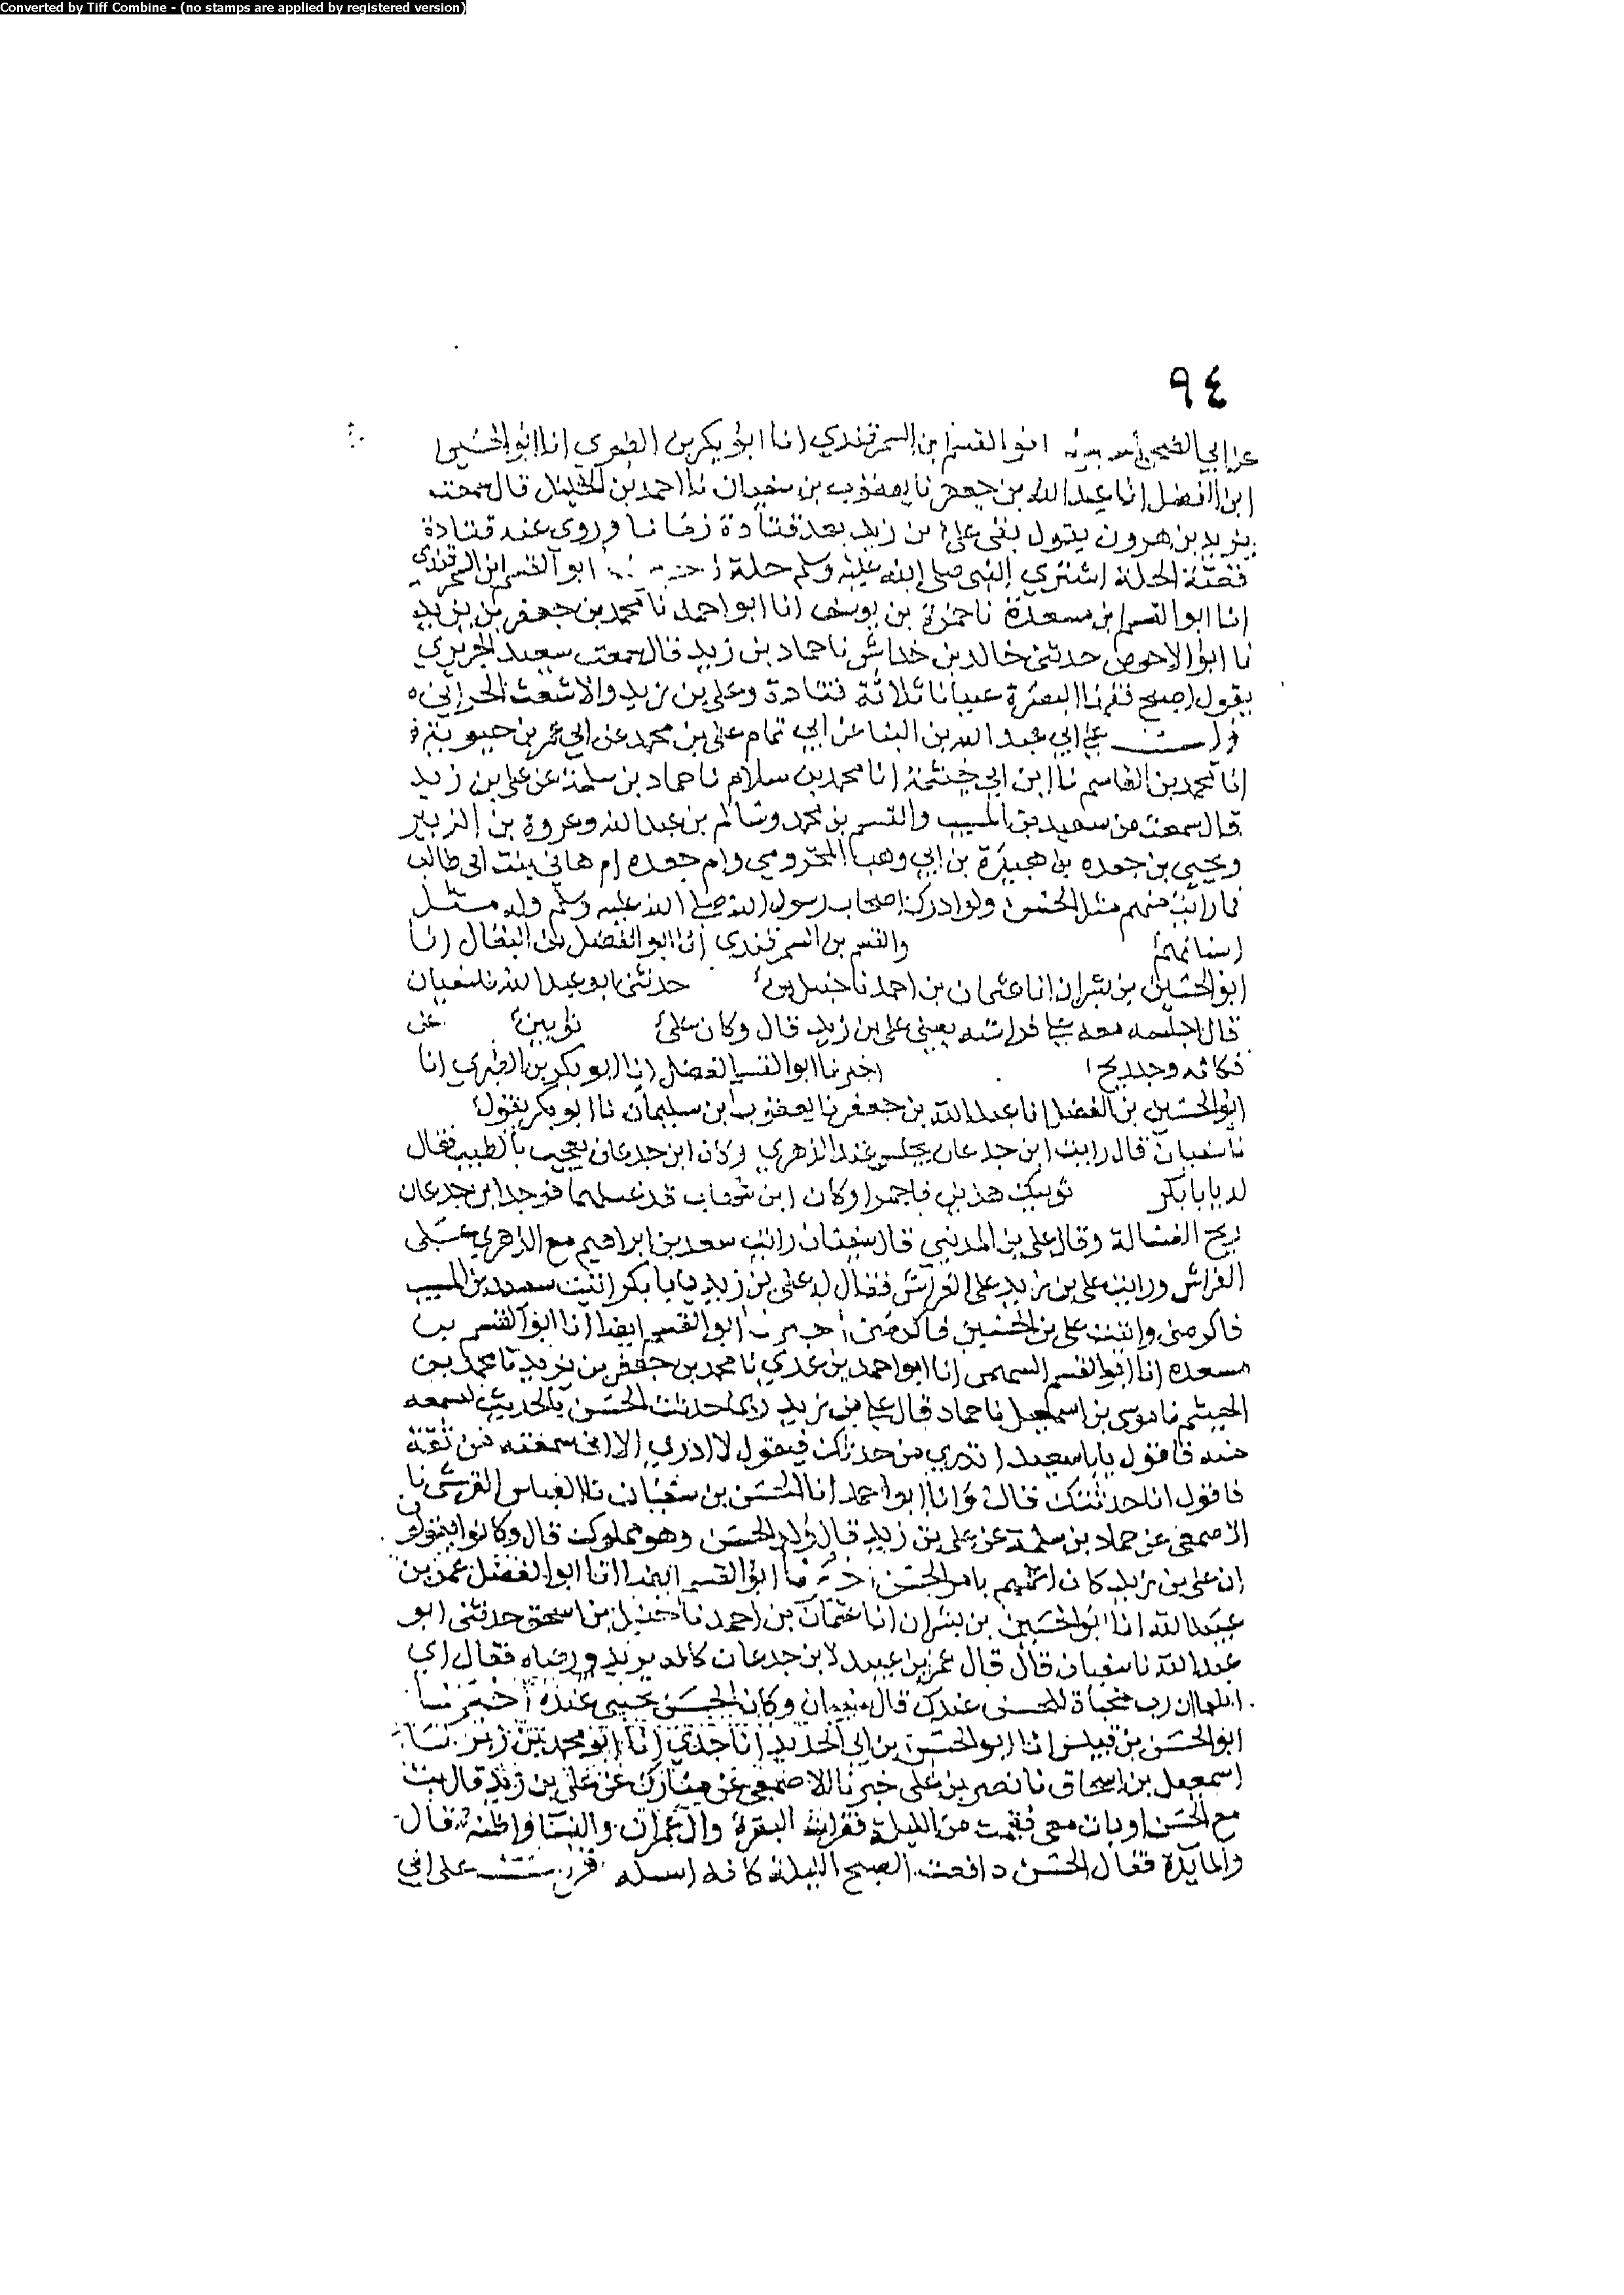 Converted by Tiff Combine - (no stamps are applied by registered version)
٩٤
ابو القسم ابن السمرقندي انا ابو بكر بن الطبري انا ابو الحسين
ابن الفضل انا عبد الله بن جعفر نا يعقوب بن سفيان نا احمد بن الخليل قال سمعت
يزيد بن هرون يقول بقى على ابن زيد بعد قتادة زمانا وروى عنه قتادة
قصة الحلة اشترى النبي صلى الله عليه وسلم حلة ابو القسم ابن السمرقندي
انا ابو القسم ابن مسعدة نا حمزة بن يوسف انا ابو احمد نا محمد بن جعفر بن يزيد
نا ابو الاحوص حدثني خالد بن خداش نا حماد بن زيد قال سمعت سعيد الجريري
يقول اصبح فقهاء البصرة عميانا ثلاثة قتادة وعلي بن زيد والاشعث الحداني
على ابي عبد الله بن البنا عن ابي تمام علي بن محمد عن ابي عمر بن حيويه
انا محمد بن القاسم نا ابن ابي خيثمة انا محمد بن سلام نا حماد بن سلمة عن علي بن زيد
قال سمعت من سعيد بن المسيب والقسم بن محمد وسالم بن عبد الله وعروة بن الزبير
ويحيى بن جعده بن هبيرة بن ابي وهب المخزومي وام جعده ام هاني بنت ابي طالب
فما رايت منهم مثل الحسن ولو ادرك اصحاب رسول الله صلى الله عليه وسلم وله مثل
اسنانهم والقسم بن السمرقندي انا ابو الفضل بن البقال انا
ابو الحسين بن بشران انا عثمان بن احمد نا حنبل بن حدثني ابو عبد الله نا سفيان
قال اجلسه معه على فراشه يعني علي بن زيد قال وكان على ثوبين
فكانه وجد ريح اخبرنا ابو القسم الفضل انا ابو بكر بن الطبري انا
ابو الحسين بن الفضل انا عبد الله بن جعفر نا يعقوب ابن سليمان نا ابو بكر يقول
نا سفيان قال رايت ابن جدعان يجلس عند الزهري وكان ابن جدعان يعجب بالطيب فقال
له يا با بكر ثوبيك هذين فاجمرا وكان ابن شهاب قد غسلهما فوجد ابن جدعان
ريح الغسالة وقال علي بن المديني قال سفيان رايت سعد بن ابراهيم مع الزهري على
الفراش ورايت علي بن زيد على الفراش فقال له علي بن زيد يا با بكر اتيت سعيد بن المسيب
فاكرمني واتيت علي بن الحسين فاكرمني ابو القسم ايضا انا ابو القسم بن
مسعدة انا ابو القسم السهمي انا ابو احمد بن عدي نا محمد بن جعفر بن يزيد نا محمد بن
الهيثم نا موسى بن اسمعيل نا حماد قال علي بن زيد ربما حدثت الحسن بالحديث اسمعه
منه فاقول يا با سعيد اتدري من حدثك فيقول لا ادري الا اني سمعته من ثقة
فاقول انا حدثتك قال وانا ابو احمد انا الحسن بن سفيان نا العباس القرشي نا
الاصمعي عن حماد بن سلمة عن علي بن زيد قال ولد الحسن وهو مملوك قال وكانوا يقولون
ان علي بن زيد كان اعلمهم بامر الحسن ابو القسم ايضا انا ابو الفضل عمر بن
عبيد الله انا ابو الحسين بن بشران انا عثمان بن احمد نا حنبل بن اسحق حدثني ابو
عبد الله نا سفيان قال قال عمرو بن عبيد لابن جدعان كانه يريد فقال اي
رب مخباة للحسن عندك قال سفيان وكان الحسن يختبى عنده اخبرنا
ابو الحسن بن قبيس انا ابو الحسن بن ابي الحديد انا جدي انا ابو محمد بن زبر نا
اسمعيل بن اسحاق نا نصر بن علي خبرنا الاصمعي عن مبارك عن علي بن زيد قال بت
مع الحسن او بات معي فقمت من الليلة فقرات البقرة وال عمران والنسا واظنه قال
والمايدة فقال الحسن دافعت الصبح الليلة على ابي